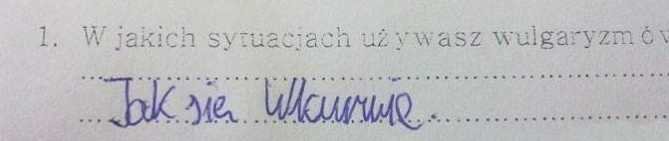 1. W jakich sytuacjach używasz wulgaryzmów
Jak się wkurwię.